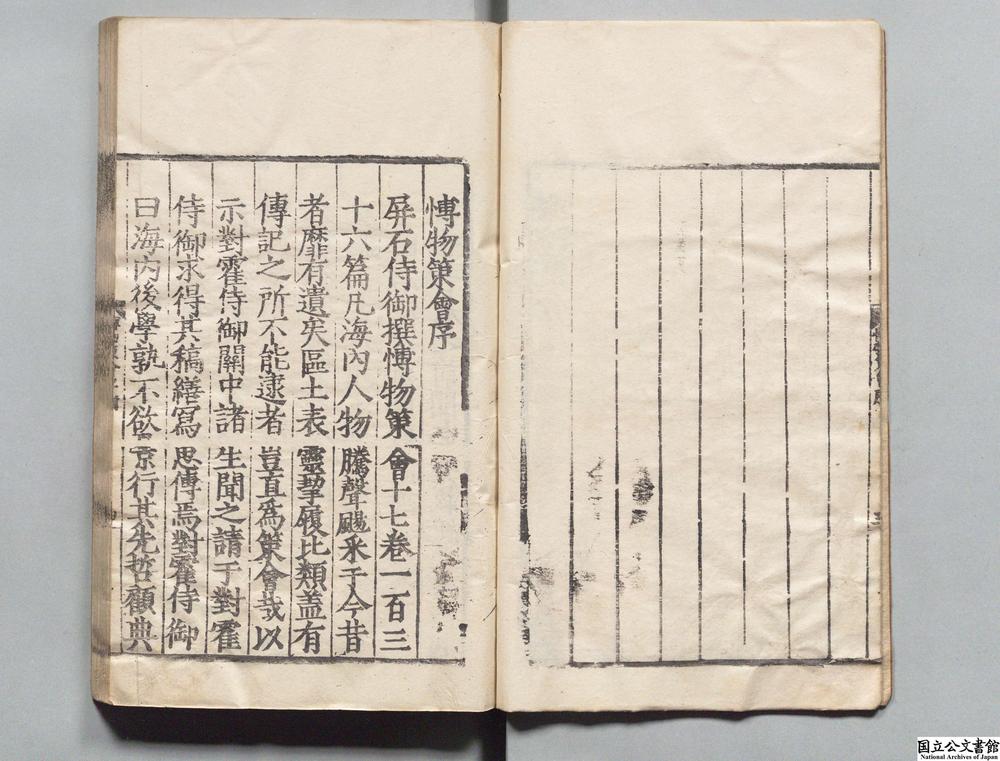 博物策會序
屏石侍御撰博物策會十七卷一百三
十六篇凡海內人物騰聲颺釆于今昔
者靡有遺矣區土表靈挈履比類盖有
傳記之所不能逮者豈直爲策會哉以
示對霍侍御關中諸生聞之請于對霍
侍御求得其稿繕寫思傳焉對霍侍御
曰海內後學孰不欲景行其先哲顧典
国立公文書館
National Archives of Japan